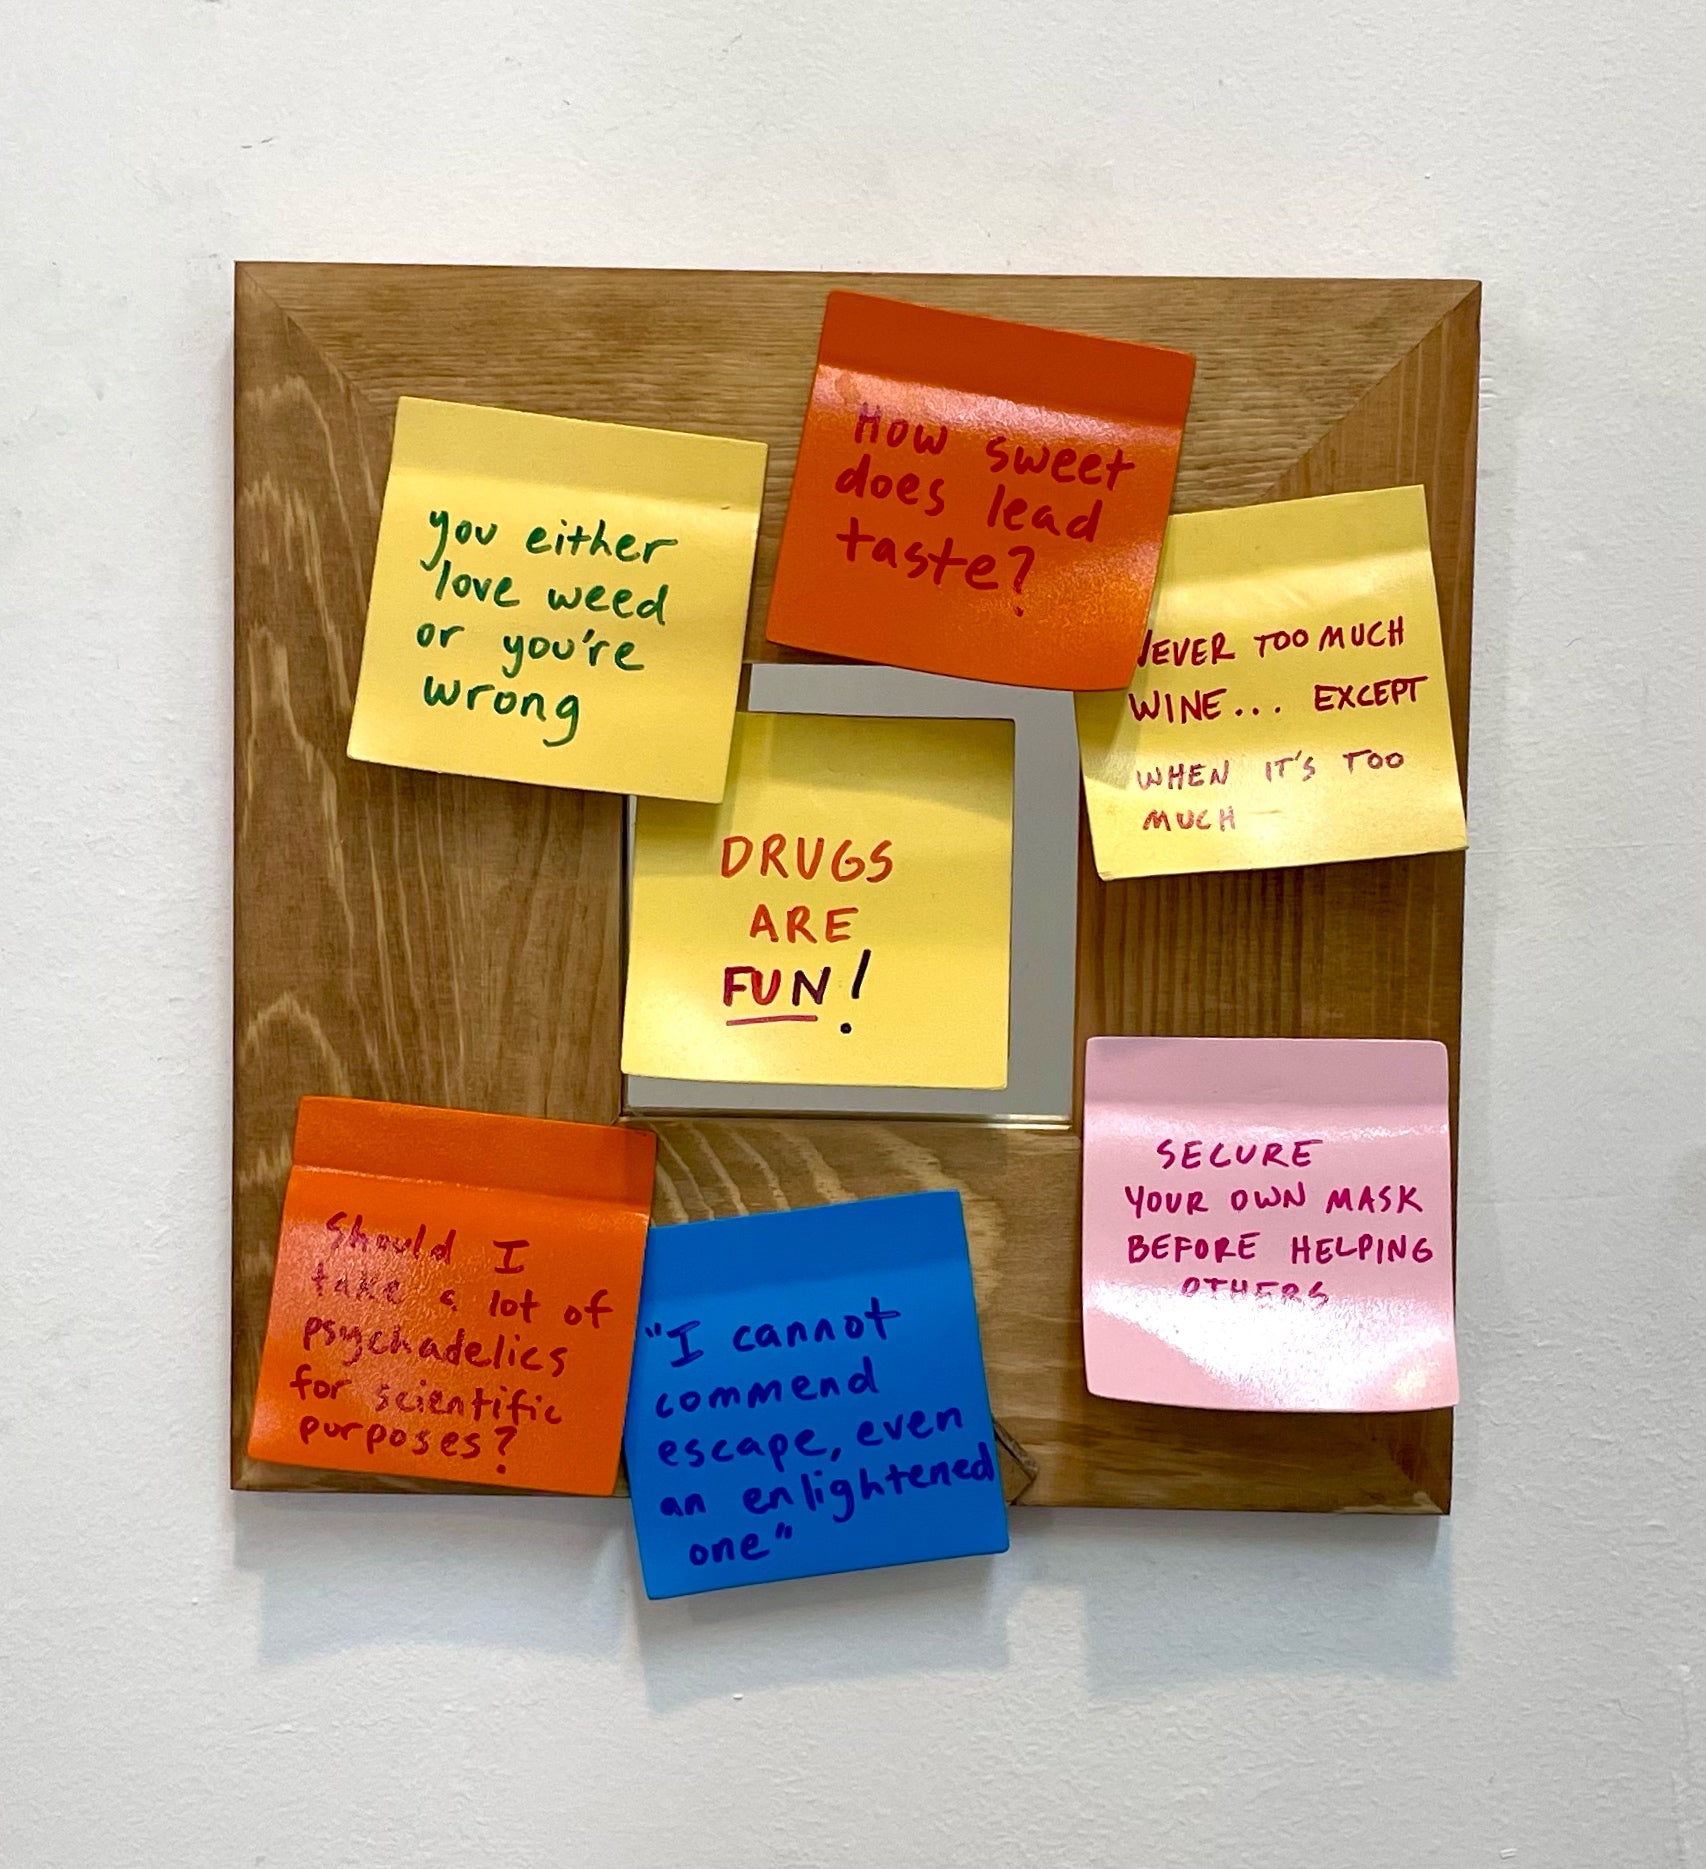 you either
love weed
or you're
wrong
How sweet
does lead
taste?
NEVER TOO MUCH
WINE... EXCEPT
WHEN IT'S TOO
MUCH
DRUGS
ARE
FUN!
SECURE
YOUR OWN MASK
BEFORE HELPING
OTHERS
Should I
take a lot of
psychadelics
for scientific
purposes?
"I cannot
commend
escape, even
an enlightened
one"